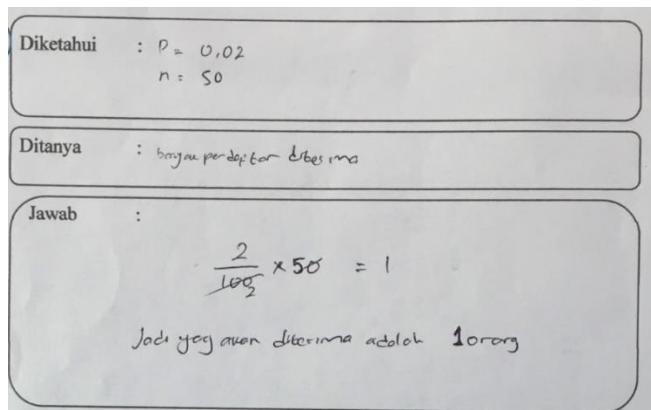 Diketahui : P = 0,02
n = 50
Ditanya : banyak pendaftar diterima
Jawab :
2/100 2 × 50 = 1
Jadi yag akan diterima adalah 1 orang